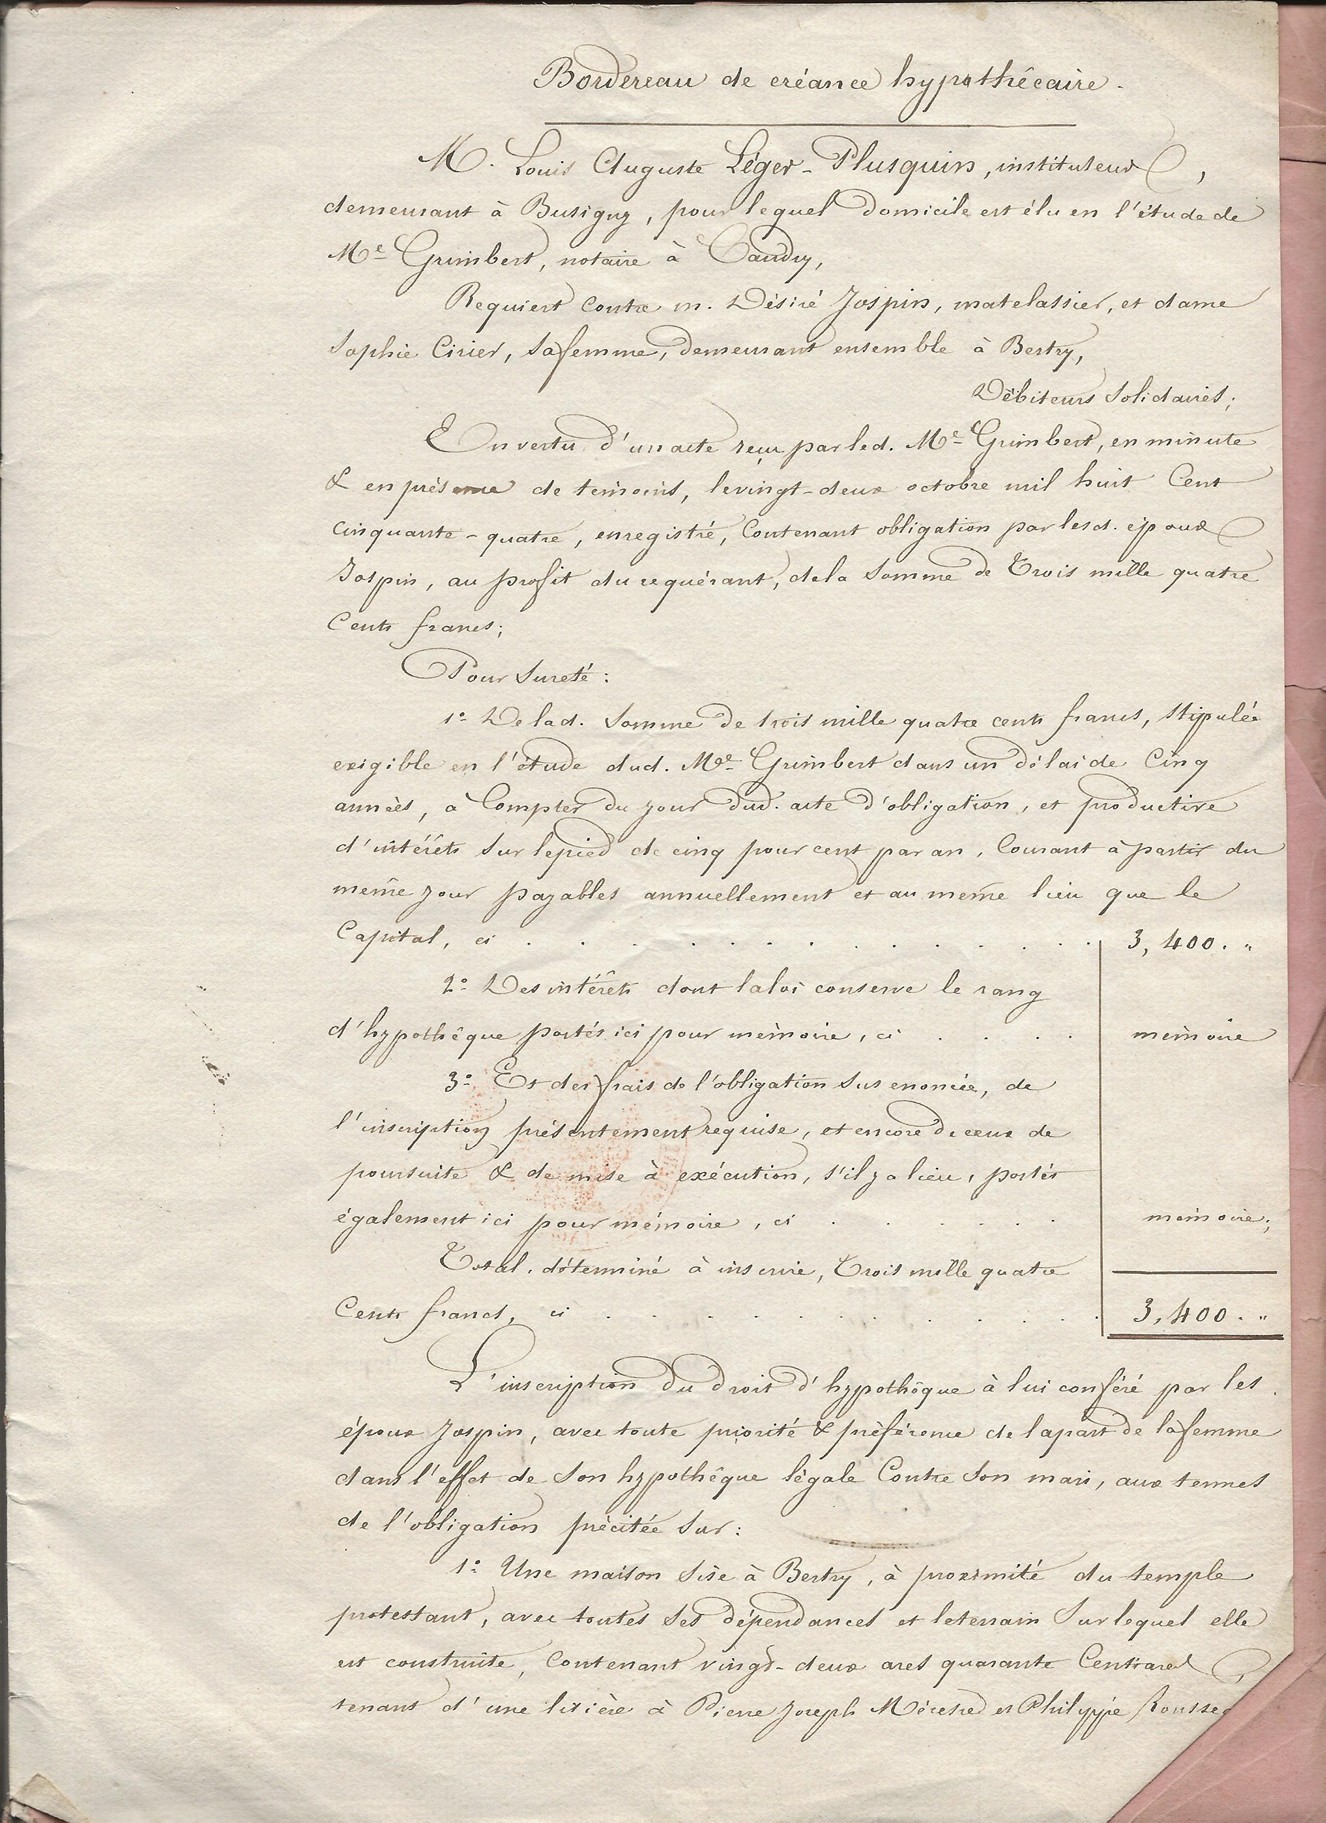 Bordereau de créance hypothécaire.
M. Louis Auguste Léger-Plusquin, instituteur,
demeurant à Busigny, pour lequel domicile est élu en l'étude de
Me Grimbert, notaire à Caudry,
Requiert contre m. Désiré Jospin, matelassier, et dame
Sophie Cirier, sa femme, demeurant ensemble à Bertry,
Débiteurs solidaires;
En vertu d'un acte reçu par led. Me Grimbert, en minute
& en présence de témoins, le vingt-deux octobre mil huit cent
cinquante-quatre, enregistré, contenant obligation par lesd. époux
Jospin, au profit du requérant, de la somme de Trois mille quatre
cents francs;
Pour sureté:
1º De lad. somme de trois mille quatre cents francs, stipulée
exigible en l'étude dud. Me Grimbert dans un délai de cinq
années, à compter du jour dud. acte d'obligation, et productive
d'intérêts sur le pied de cinq pour cent par an, courant à partir du
même jour payables annuellement et au même lieu que le
capital, ci . . . . . . . . . . . . . . 3,400. "
2º Des intérêts dont la loi conserve le rang
d'hypothèque portés ici pour mémoire, ci . . . . mémoire
3º Et des frais de l'obligation sus énoncée, de
l'inscription présentement requise, et encore de ceux de
poursuite & de mise à exécution, s'il y a lieu, portés
également ici pour mémoire, ci . . . . . . mémoire;
Total déterminé à inscrire, Trois mille quatre
cents francs, ci . . . . . . . . . . . 3,400. "
L'inscription du droit d'hypothèque à lui conféré par les
époux Jospin, avec toute priorité & préférence de la part de la femme
dans l'effet de son hypothèque légale contre son mari, aux termes
de l'obligation précitée sur:
1º Une maison sise à Bertry, à proximité du temple
protestant, avec toutes ses dépendances et le terrain sur lequel elle
est construite, contenant vingt-deux ares quarante centiares,
tenant d'une lisière à Pierre Joseph Méresse et Philippe